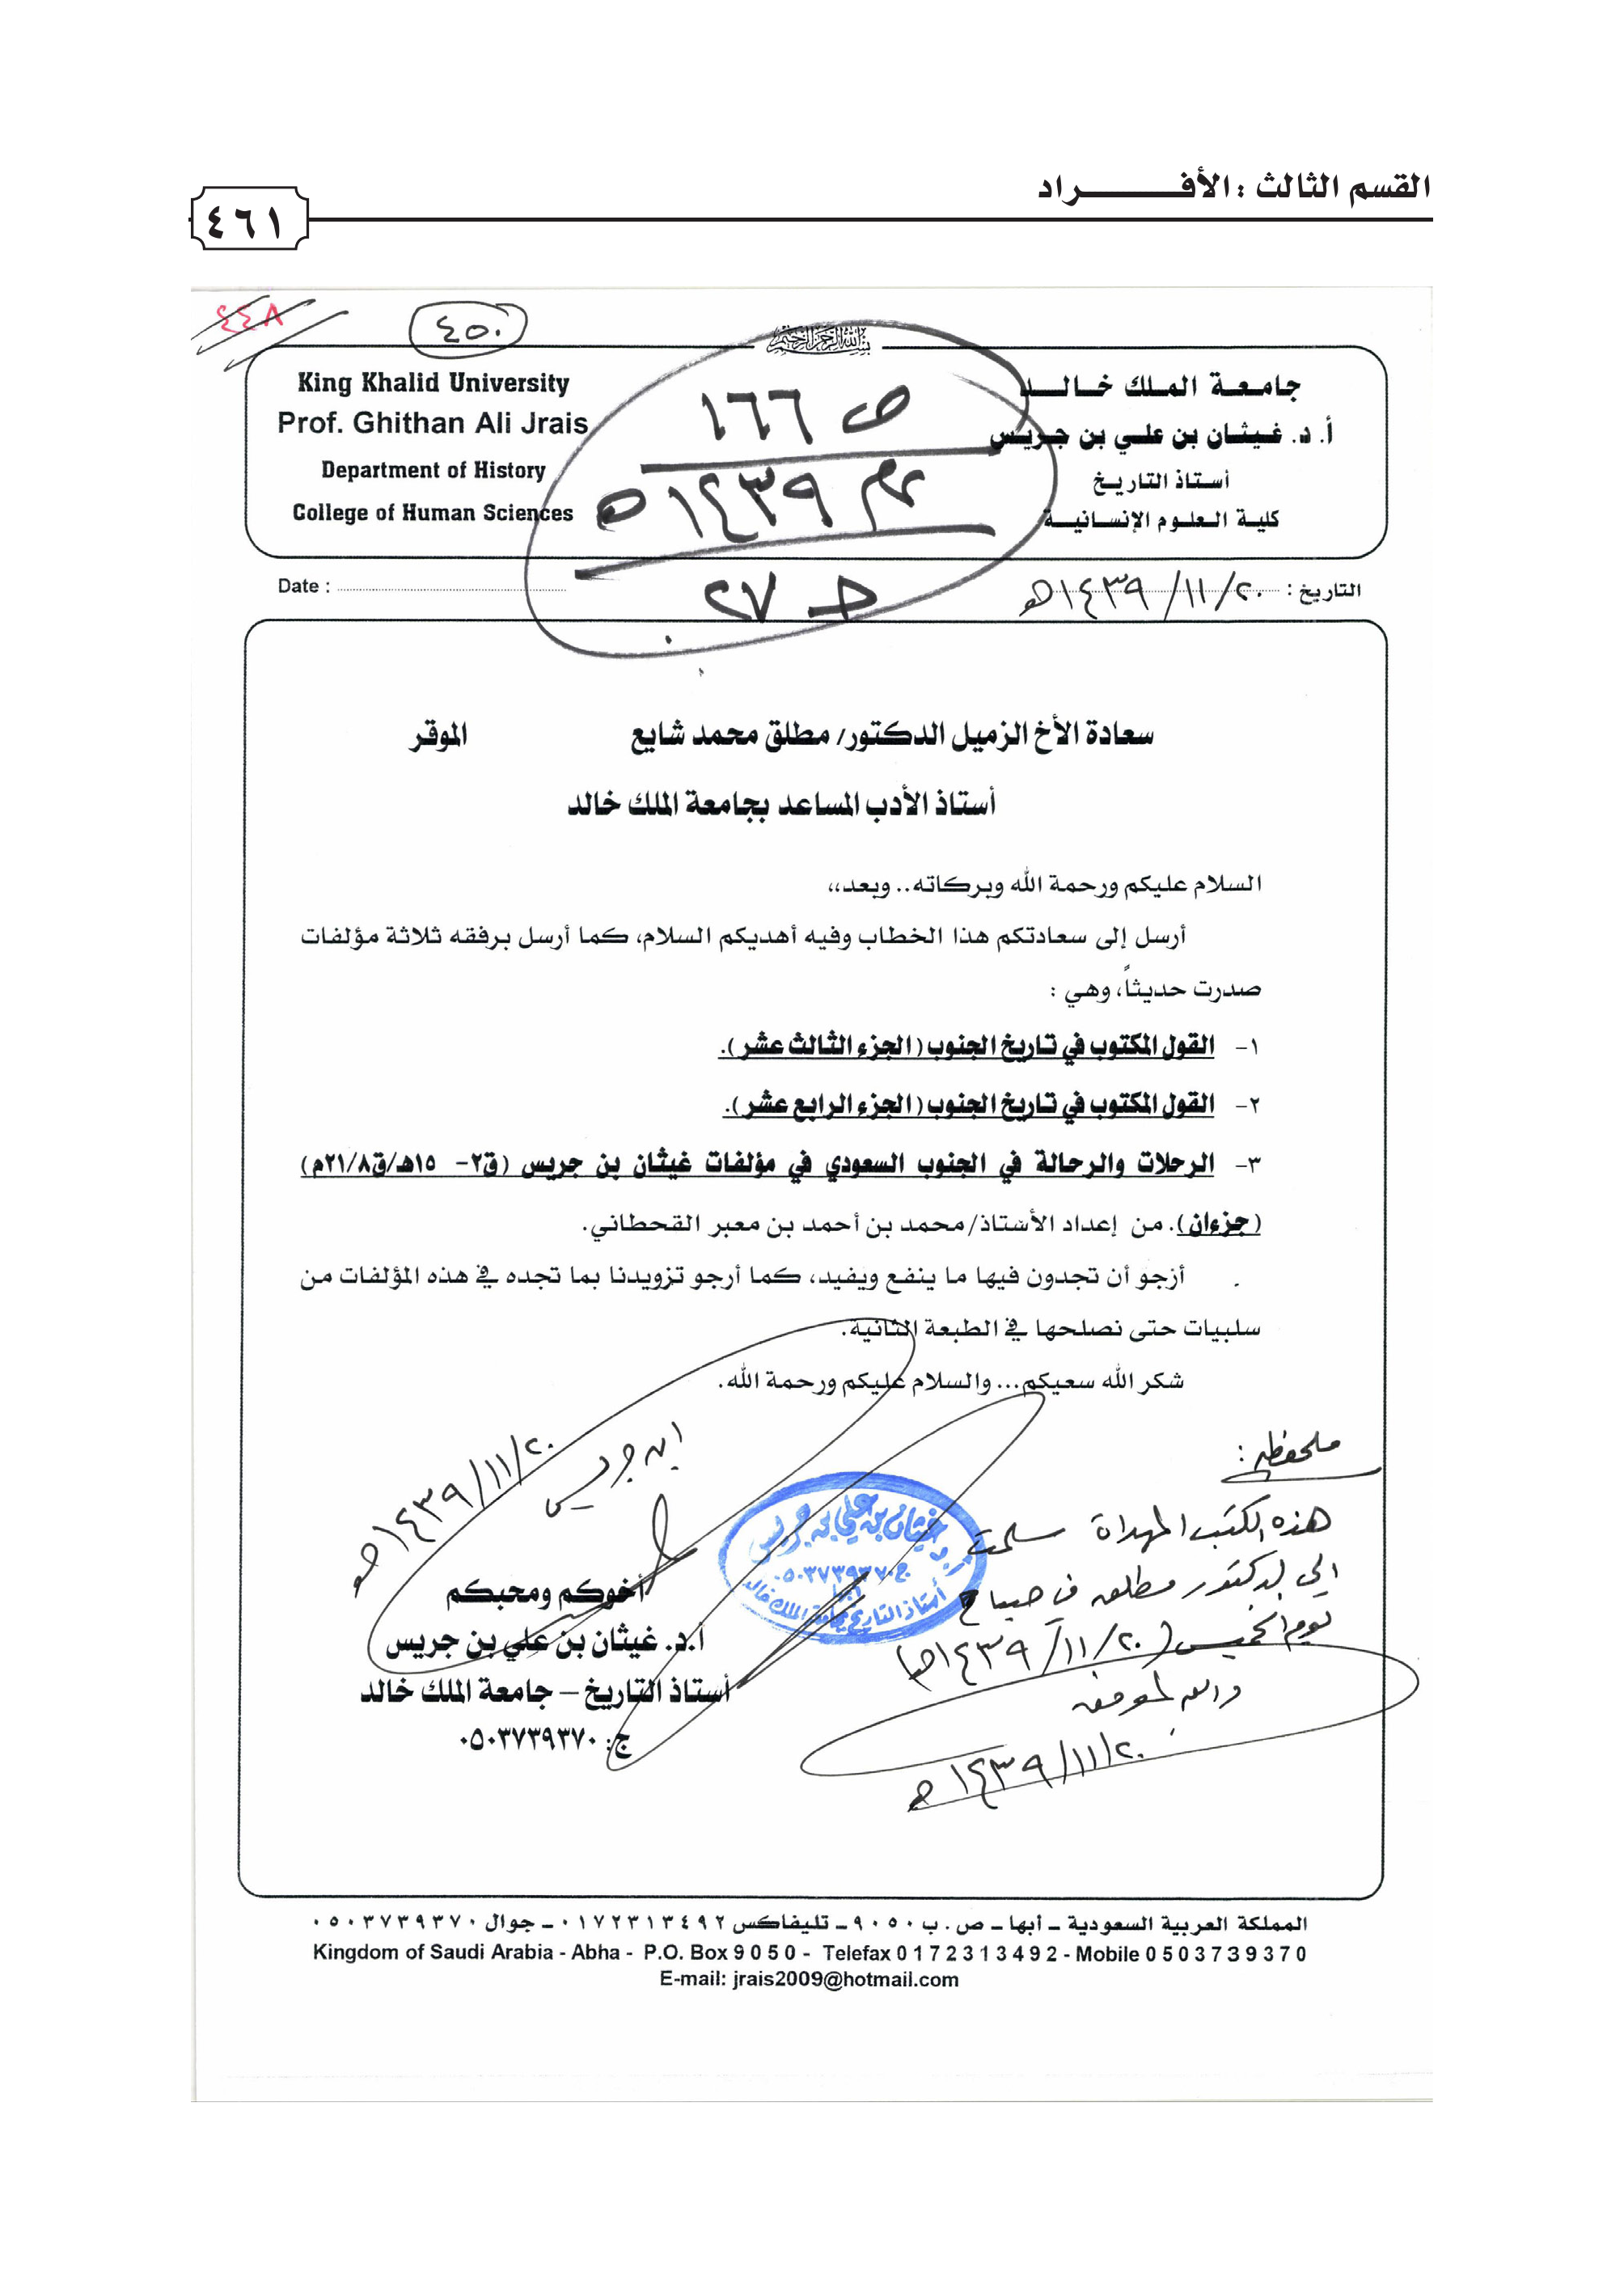 القسم الثالث : الأفـــــــــراد
٤٦١
٤٤٨
٤٥٠
بسم الله الرحمن الرحيم
King Khalid University
Prof. Ghithan Ali Jrais
Department of History
College of Human Sciences
ص ١٦٦
عام ١٤٣٩ هـ
ج ٢٧
جامعـة الملك خالـد
أ. د. غيثان بن علي بن جريس
أستاذ التاريخ
كلية العلوم الإنسانية
Date :
التاريخ : ٢٠ / ١١ / ١٤٣٩هـ
سعادة الأخ الزميل الدكتور/ مطلق محمد شايع الموقر
أستاذ الأدب المساعد بجامعة الملك خالد
السلام عليكم ورحمة الله وبركاته.. وبعد،،
أرسل إلى سعادتكم هذا الخطاب وفيه أهديكم السلام، كما أرسل برفقه ثلاثة مؤلفات
صدرت حديثاً، وهي :
١- القول المكتوب في تاريخ الجنوب (الجزء الثالث عشر).
٢- القول المكتوب في تاريخ الجنوب (الجزء الرابع عشر).
٣- الرحلات والرحالة في الجنوب السعودي في مؤلفات غيثان بن جريس (ق٢- ١٥هـ/ق٢١/٨م)
(جزءان). من إعداد الأستاذ/ محمد بن أحمد بن معبر القحطاني.
أرجو أن تجدون فيها ما ينفع ويفيد، كما أرجو تزويدنا بما تجده في هذه المؤلفات من
سلبيات حتى نصلحها في الطبعة الثانية.
شكر الله سعيكم... والسلام عليكم ورحمة الله.
ابن جريس
٢٠ / ١١ / ١٤٣٩هـ
أخوكم ومحبكم
أ.د. غيثان بن علي بن جريس
أستاذ التاريخ – جامعة الملك خالد
ج: ٠٥٠٣٧٣٩٣٧٠
أ. د. غيثان بن علي بن جريس
ج: ٠٥٠٣٧٣٩٣٧٠
أبها
أستاذ التاريخ بجامعة الملك خالد
ملحوظة :
هذه الكتب المهداة سلمت
إلى الدكتور مطلق في صباح
يوم الخميس (٢٠ / ١١ / ١٤٣٩هـ)
والله الموفق
٢٠ / ١١ / ١٤٣٩هـ
المملكة العربية السعودية – أبها – ص. ب ٩٠٥٠ – تليفاكس ٠١٧٢٣١٣٤٩٢ – جوال ٠٥٠٣٧٣٩٣٧٠
Kingdom of Saudi Arabia - Abha - P.O. Box 9 0 5 0 - Telefax 0 1 7 2 3 1 3 4 9 2 - Mobile 0 5 0 3 7 3 9 3 7 0
E-mail: jrais2009@hotmail.com